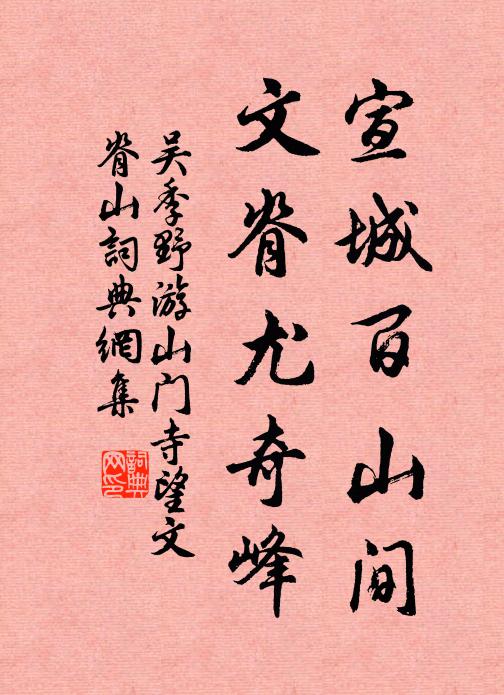 宣城百山间
文脊尤奇峰
吴季野游山门寺望文
脊山詞典網集
詞典网印